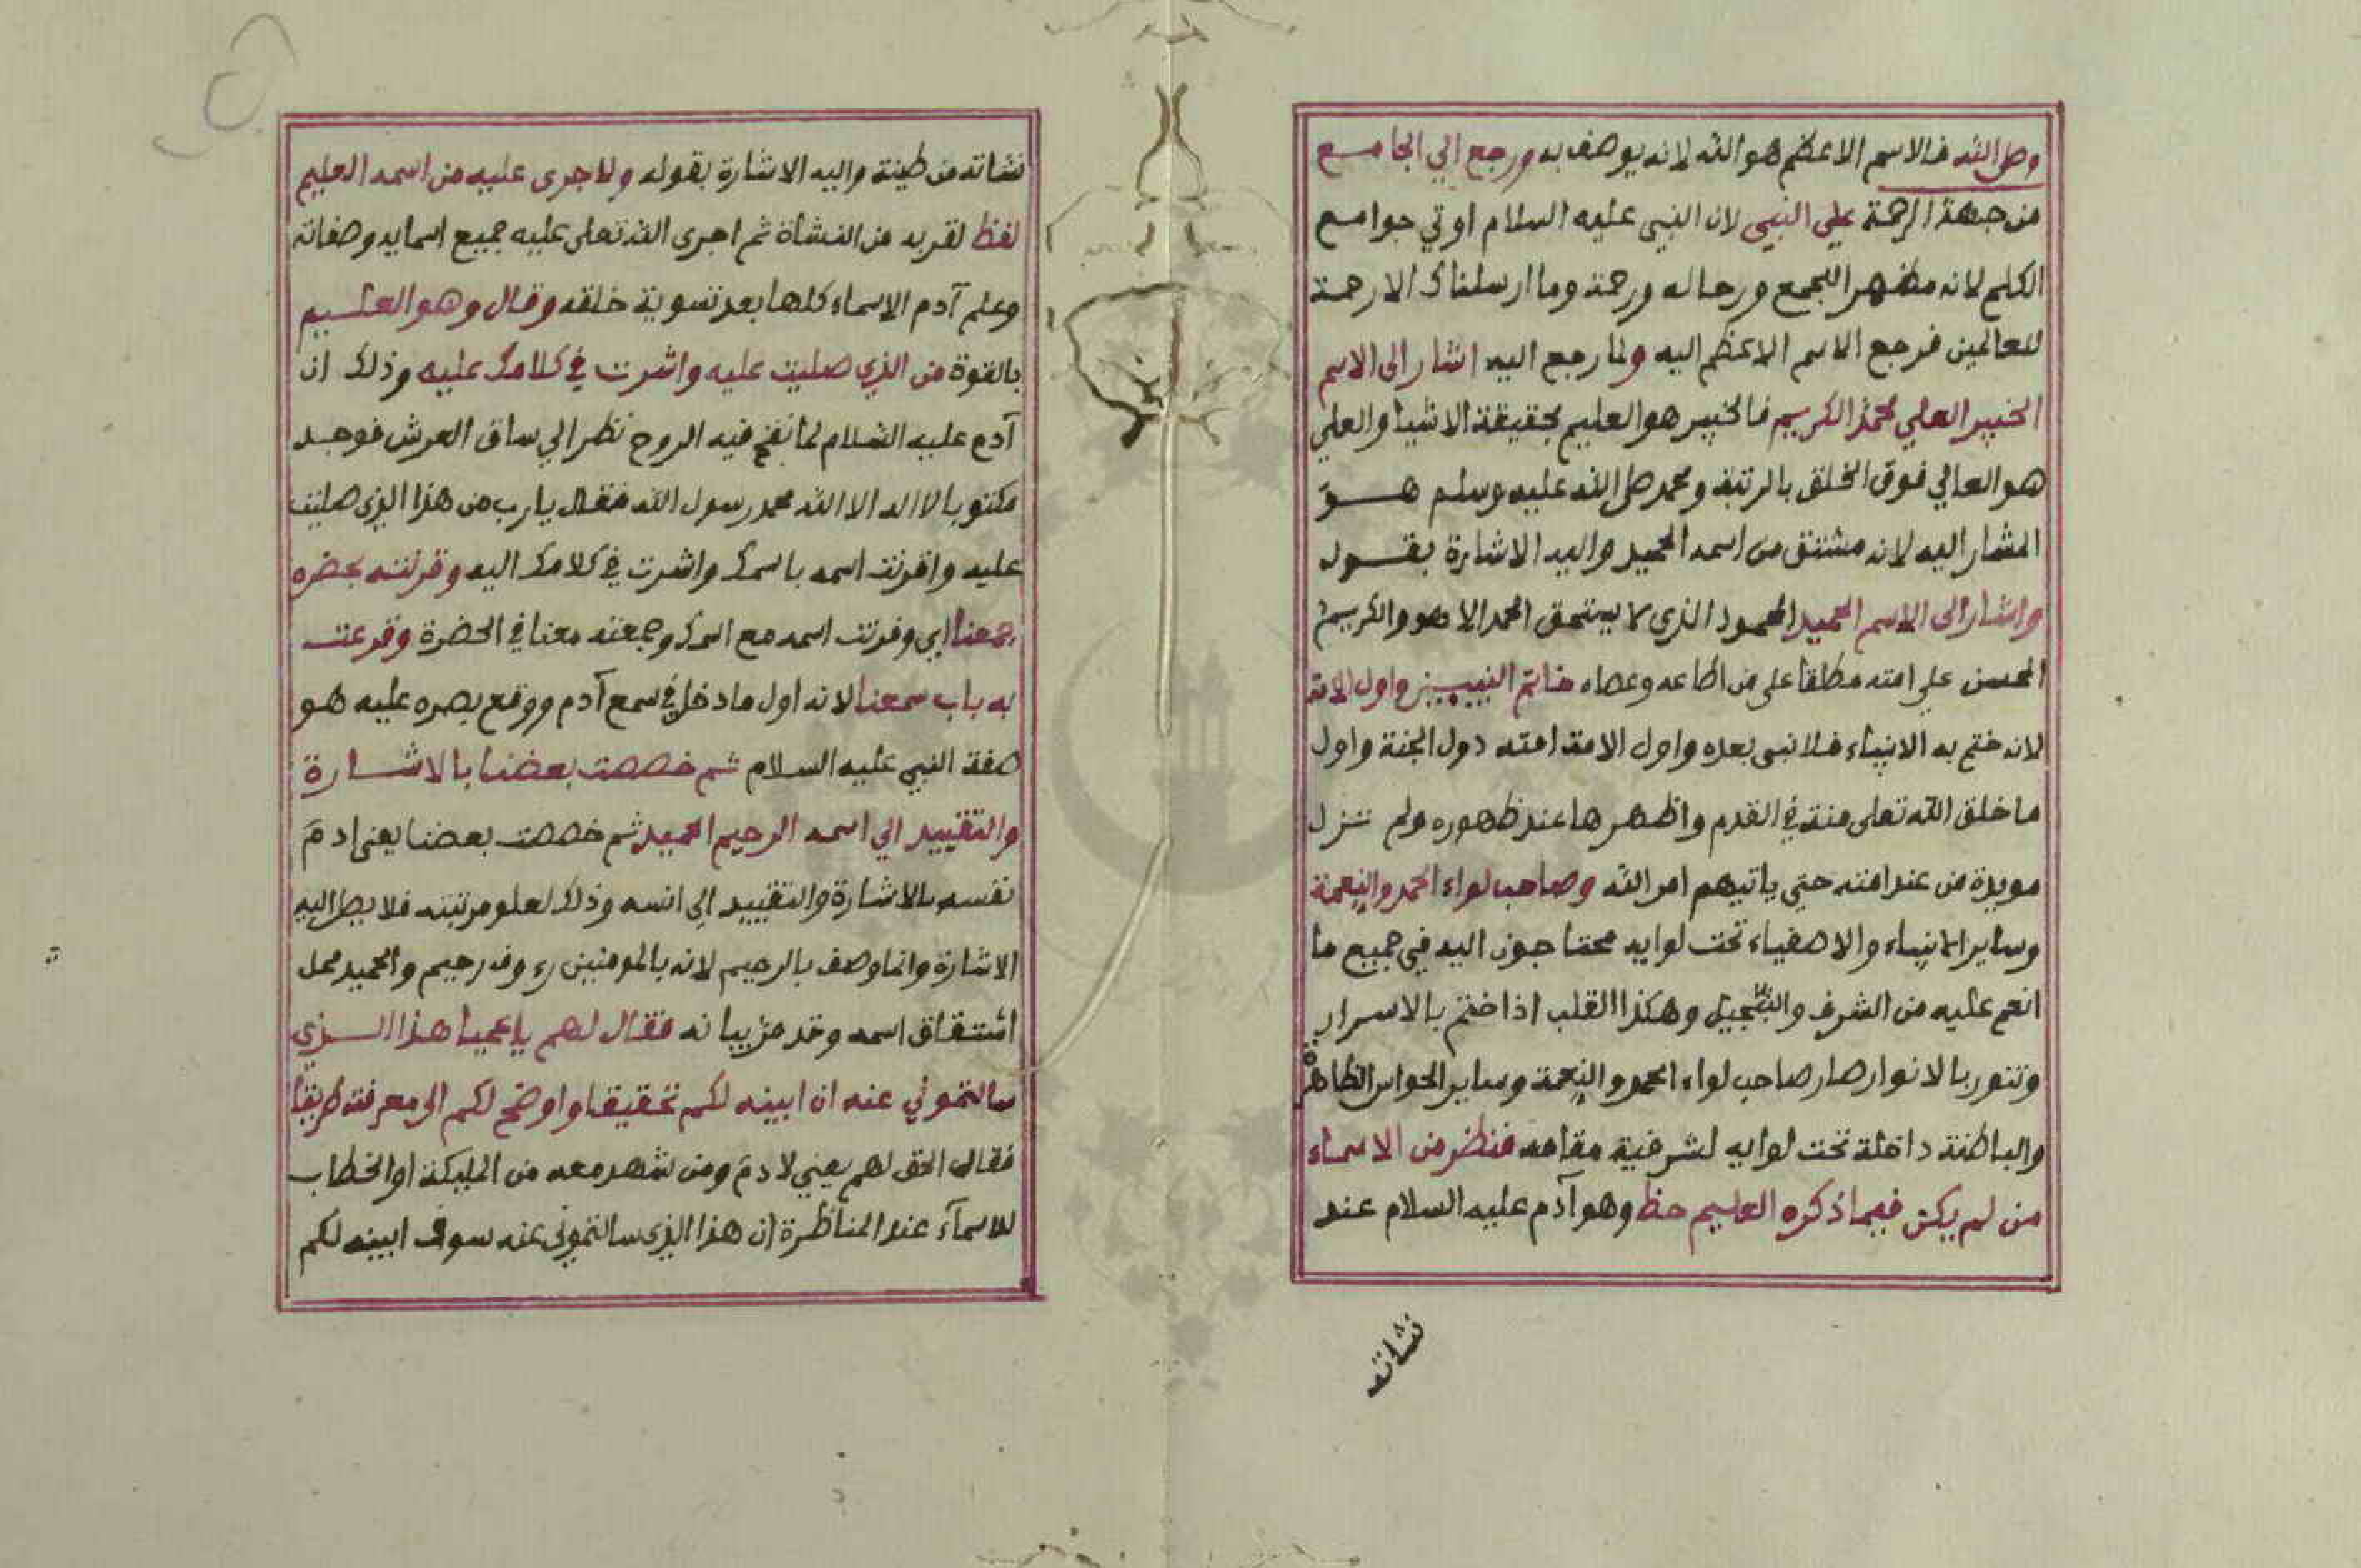 وصلى الله فالاسم الاعظم هو الله لانه يوصف به ورجع الي الجامع
من جهة الرحمة علي النبي لان النبي عليه السلام اوتي جوامع
الكلم لانه مظهر الجمع ورحاله ورحمة وما ارسلناك الا رحمة
للعالمين فرجع الاسم الاعظم اليه ولما رجع اليه اشار الى الاسم
الخبير العلي محمد الكريم فالخبير هو العليم بحقيقة الاشيا والعلي
هو العالي فوق الخلق بالرتبة ومحمد صلى الله عليه وسلم هو
المشار اليه لانه مشتق من اسمه الحميد واليه الاشارة بقوله
واشار الى الاسم الحميد المحمود الذي لا يستحق الحمد الا هو والكريم
المحسن علي امته مطلقا على من اطاعه وعصاه خاتم النبيين واول الامة
لانه ختم به الانبياء فلا نبي بعده واول الامة امته دول الجنة واول
ما خلق الله تعلى منة في القدم واظهرها عند ظهوره ولم تنزل
مويدة من عند امته حتي ياتيهم امر الله وصاحب لواء الحمد والنعمة
وساير الانبياء والاصفياء تحت لوايه محتاجون اليه في جميع ما
انعم عليه من الشرف والتبجيل وهكذا القلب اذا ختم بالاسرار
وتنور بالانوار صار صاحب لواء الحمد والنعمة وساير الحواس الظاهرة
والباطنة داخلة تحت لوايه لشرفية مقامه فنظر من الاسماء
من لم يكن فيما ذكره العليم حظ وهو آدم عليه السلام عند
نشاته
نشاته من طينة واليه الاشارة بقوله ولا جرى عليه من اسمه العليم
لفظ لقربه من النشاة ثم اجرى الله تعلى عليه جميع اسمايه وصفاته
وعلم آدم الاسماء كلها بعد تسوية خلقه وقال وهو العليم
بالقوة من الذي صليت عليه واشرت في كلامك عليه وذلك ان
آدم عليه السلام لما نفخ فيه الروح نظر الي ساق العرش فوجد
مكتوبا لا اله الا الله محمد رسول الله فقال يا رب من هذا الذي صليت
عليه واقرنت اسمه باسمك واشرت في كلامك اليه وقرنته بحضره
جمعنا اي وقرنت اسمه مع اسمك وجمعته معنا في الحضرة وقرعت
به باب سمعنا لانه اول ما دخل في سمع آدم ووقع بصره عليه هو
صفة النبي عليه السلام ثم خصصت بعضنا بالاشارة
والتقييد الي اسمه الرحيم الحميد ثم خصصت بعضنا يعني ادم
نفسه بالاشارة والتقييد الي انسه وذلك لعلو مرتبته فلا يصل اليه
الاشارة وانما وصف بالرحيم لانه بالمومنين رءوف رحيم والحميد محل
اشتقاق اسمه وقد مر بيانه فقال لهم يا عجبا هذا الذي
سالتموني عنه ان ابينه لكم تحقيقا واوضح لكم الى معرفته طريقا
فقال الحق لهم يعني لادم ومن شهد معه من المليكة او الخطاب
للاسمآء عند المناظرة ان هذا الذي سالتموني عنه سوف ابينه لكم